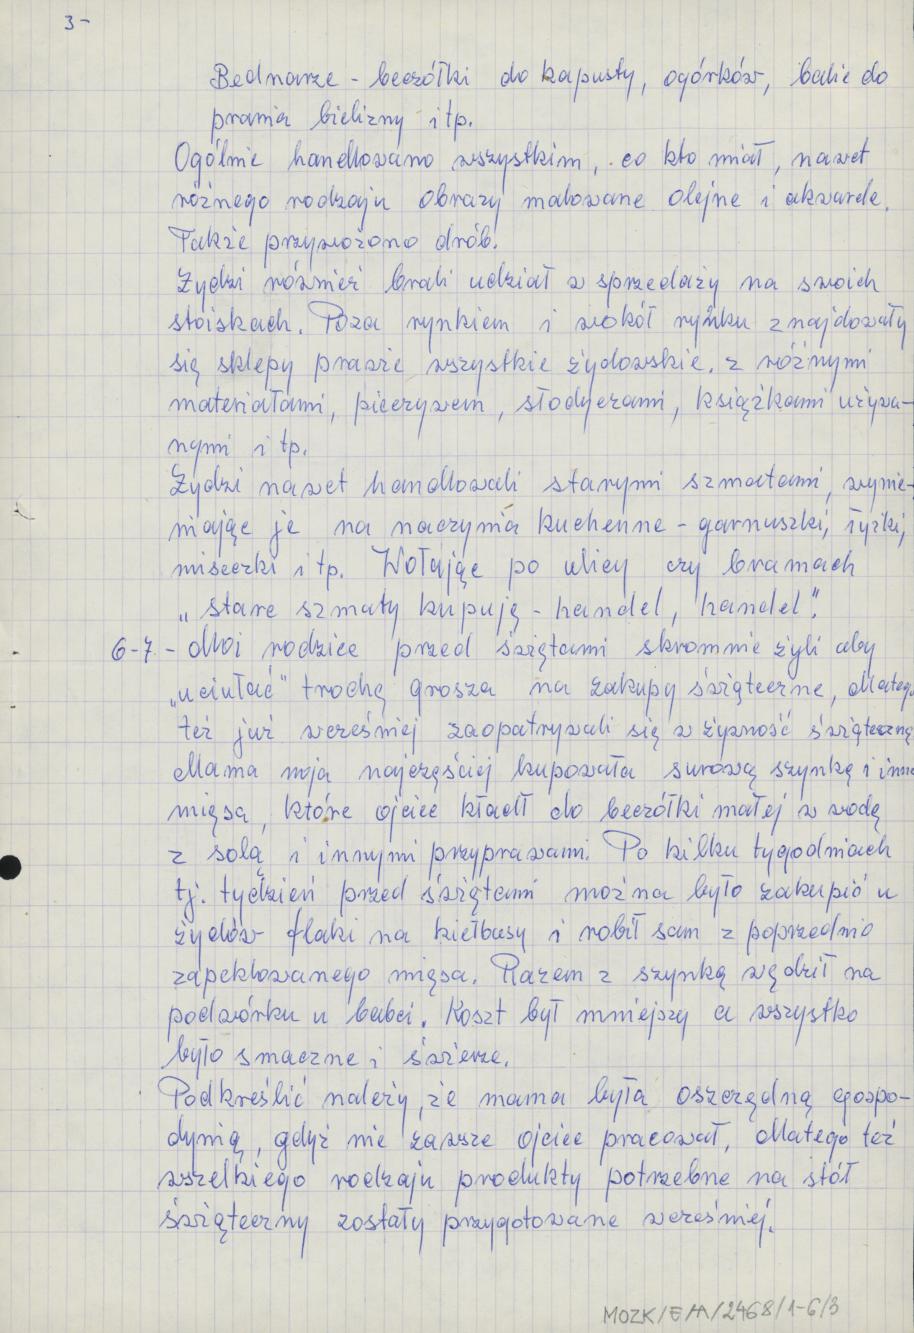 3-
Bednarze - beczółki do kapusty, ogórków, balie do
prania bielizny itp.
Ogólnie handlowano wszystkim, co kto miał, nawet
różnego rodzaju obrazy malowane olejne i akwarele.
Także przywożono drób.
Żydzi również brali udział w sprzedaży na swoich
stoiskach. Poza rynkiem i wokół rynku znajdowały
się sklepy prawie wszystkie żydowskie, z różnymi
materiałami, pieczywem, słodyczami, książkami używa-
nymi i tp.
Żydzi nawet handlowali starymi szmatami, wymie-
niając je na naczynia kuchenne - garnuszki, łyżki,
miseczki i tp. Wołając po ulicy czy bramach
„stare szmaty kupuję - handel, handel".
6-7 - Moi rodzice przed świętami skromnie żyli aby
„uciułać" trochę grosza na zakupy świąteczne, dlatego
też już wcześniej zaopatrywali się w żywność świąteczną
Mama moja najczęściej kupowała surową szynkę i inne
mięsa, które ojciec kładł do beczółki małej w wodę
z solą i innymi przyprawami. Po kilku tygodniach
tj. tydzień przed świętami można było zakupić u
żydów flaki na kiełbasy i robił sam z poprzednio
zapeklowanego mięsa. Razem z szynką wędził na
podwórku u babci. Koszt był mniejszy a wszystko
było smaczne i świeże.
Podkreślić należy, że mama była oszczędną gospo-
dynią, gdyż nie zawsze ojciec pracował, dlatego też
wszelkiego rodzaju produkty potrzebne na stół
świąteczny zostały przygotowane wcześniej.
MOZK/E/A/2468/1-6/3